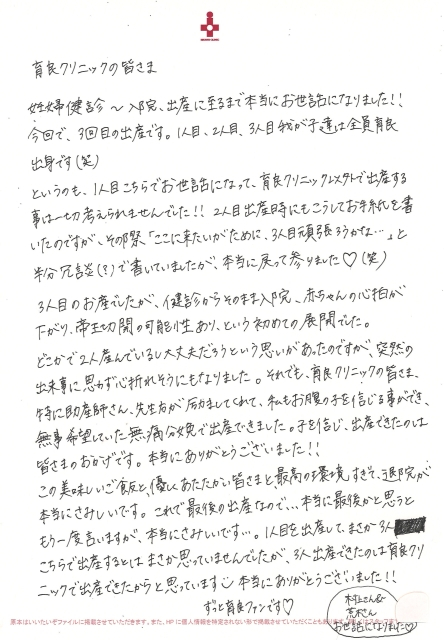 育良クリニックの皆さま
妊婦健診〜入院、出産に至るまで本当にお世話になりました!!
今回で、3回目の出産です。1人目、2人目、3人目我が子達は全員育良
出身です(笑)
というのも、1人目こちらでお世話になって、育良クリニック以外で出産する
事は一切考えられませんでした!! 2人目出産時にもこうしてお手紙を書
いたのですが、その際「ここに来たいがために、3人目頑張ろうかな…」と
半分冗談(?)で書いていましたが、本当に戻って参りました♡(笑)
3人目のお産でしたが、健診からそのまま入院、赤ちゃんの心拍が
下がり、帝王切開の可能性あり、という初めての展開でした。
どこかで2人産んでいるし大丈夫だろうという思いがあったのですが、突然の
出来事に思わず心折れそうにもなりました。それでも、育良クリニックの皆さま、
特に助産師さん、先生方が励ましてくれて、私もお腹の子を信じる事ができ、
無事希望していた無痛分娩で出産できました。子を信じ、出産できたのは
皆さまのおかげです。本当にありがとうございました!!
この美味しいご飯と、優しくあたたかい皆さまと、最高の環境すぎて、退院が
本当にさみしいです。これで最後の出産なので…、本当に最後かと思うと
もう一度言いますが、本当にさみしいです…。1人目を出産して、まさか3人
こちらで出産するとはまさか思っていませんでしたが、3人出産できたのは育良クリ
ニックで出産できたからと思います 本当にありがとうございました!!
ずっと育良ファンです♡
村上さん&
荒木さん
お世話になりました♡
原本はいいたいぞファイルに掲載させていただきます。また、HPに個人情報を特定されない形で掲載させていただくことも